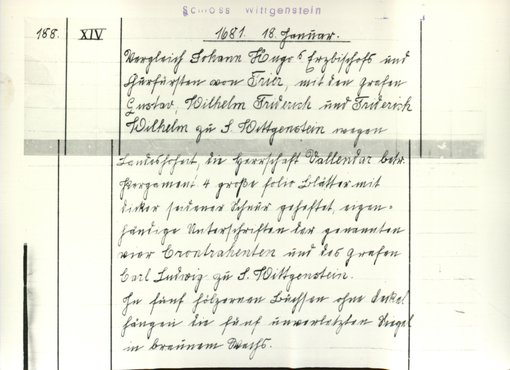 Schloss Wittgenstein
188. XIV 1681. 18. Januar.
Vergleich Johann Hugo's Erzbischofs und
Churfürsten von Trier, mit den Grafen
Gustav, Wilhelm Friderich und Friderich
Wilhelm zu S. Wittgenstein wegen
Landeshoheit, die Herrschaft Vallendar betr.
Pergament 4 große folio Blätter mit
dicker seidener Schnur geheftet, eigen-
händige Unterschriften der genannten
vier Contrahenten und des Grafen
Carl Ludwig zu S. Wittgenstein.
In fünf hölzernen Büchsen ohne Deckel
hängen die fünf unverletzten Siegel
in braunem Wachs.